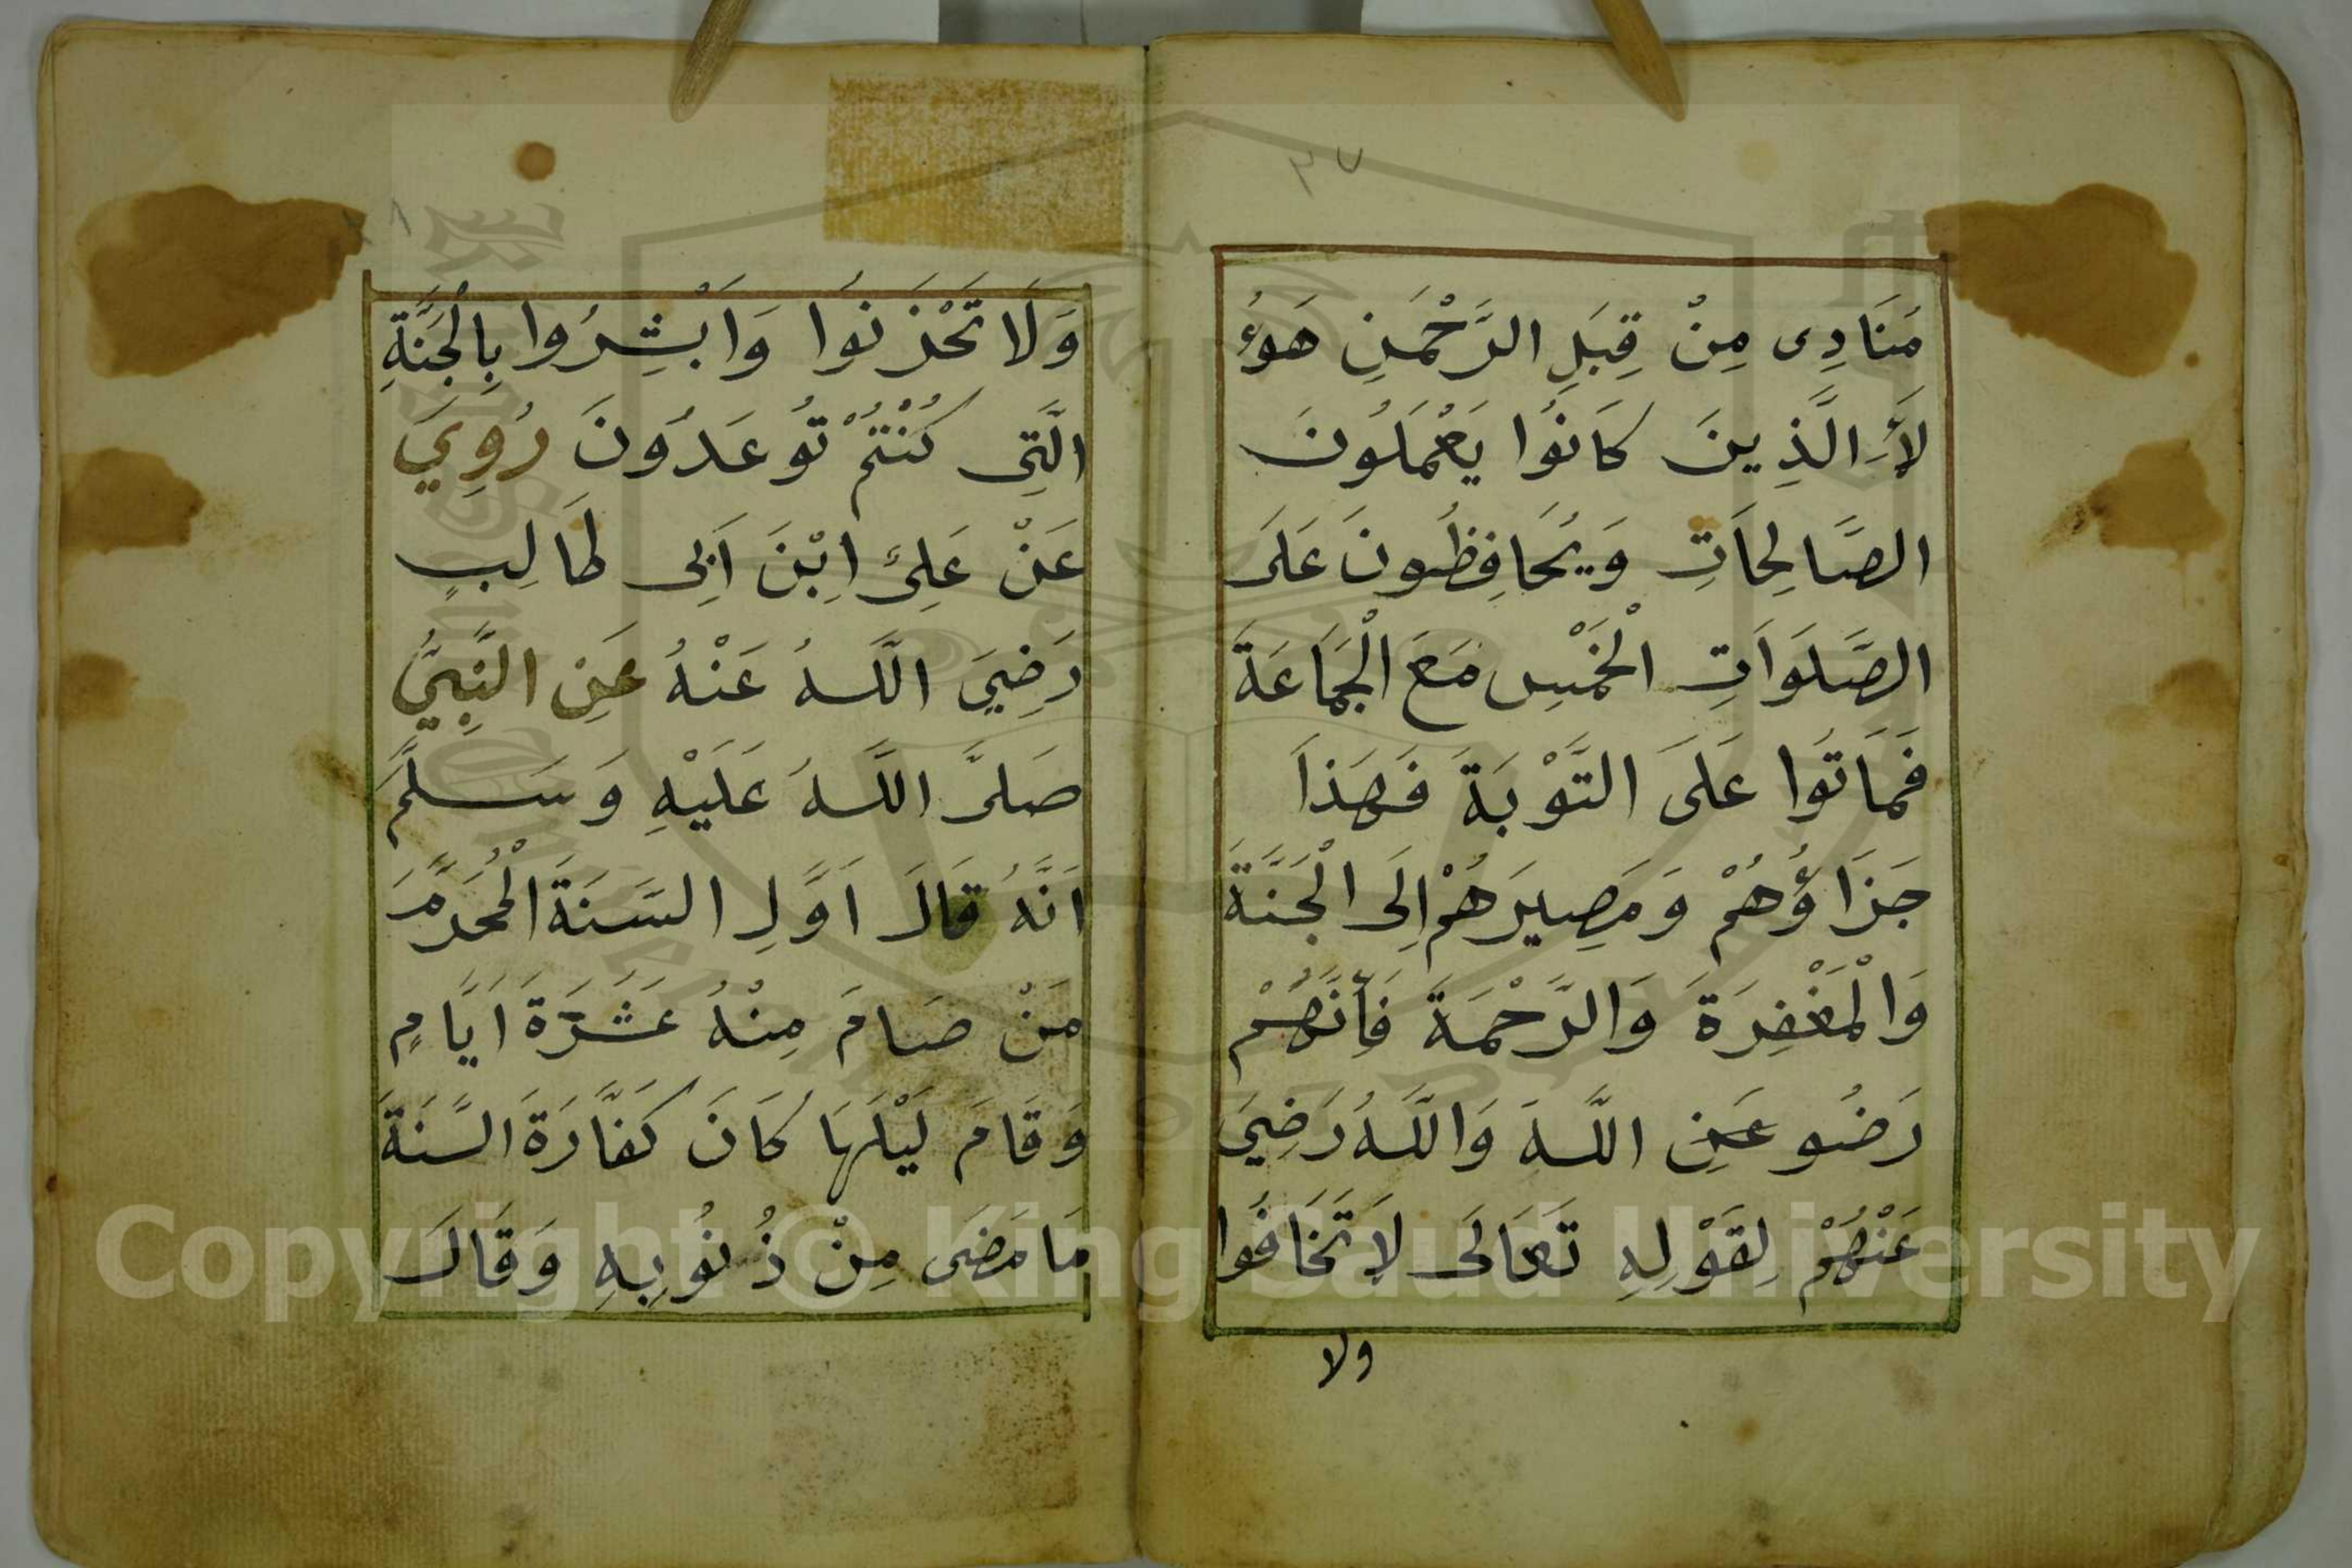 ٣٧
مَنَادِى مِنْ قِبَلِ الرَّحْمَنِ هَؤُ
لَأِ الَّذِينَ كَانُوا يَعْمَلُونَ
الصَّالِحَاتِ وَيُحَافِظُونَ عَلَى
الصَّلَوَاتِ الْخَمْسِ مَعَ الْجَمَاعَةَ
فَمَاتُوا عَلَى التَّوْبَةَ فَهَذَا
جَزَاؤُهُمْ وَمَصِيرَهُمْ اِلَى الْجَنَّةَ
وَالْمَغْفِرَةَ وَالرَّحْمَةَ فَأِنَّهُمْ
رَضُو عَنِ اللَّهَ وَاللَّهُ رَضِيَ
عَنْهُمْ لِقَوْلِهِ تَعَالَى لَا تَخَافُوا
ولا
وَلَا تَحْزَنُوا وَاَبْشِرُوا بِالْجَنَّةِ
الَّتِى كُنْتُمْ تُوعَدُونَ رُوِيَ
عَنْ عَلِىِّ اِبْنَ اَبِى طَالِبٍ
رَضِيَ اللَّهُ عَنْهُ عَنِ النَّبِيُّ
صَلَّى اللَّهُ عَلَيْهِ وَسَلَّمَ
اَنَّهُ قَالَ اَوَّلِ السَّنَةَ الْمُحَرَّمَ
مَنْ صَامَ مِنْهُ عَشَرَةَ اَيَّامٍ
وَقَامَ لَيْلَهَا كَانَ كَفَّارَةَ السَّنَةَ
مَا مَضَى مِنْ ذُنُوبِهِ وَقَالَ
Copyright © King Saud University